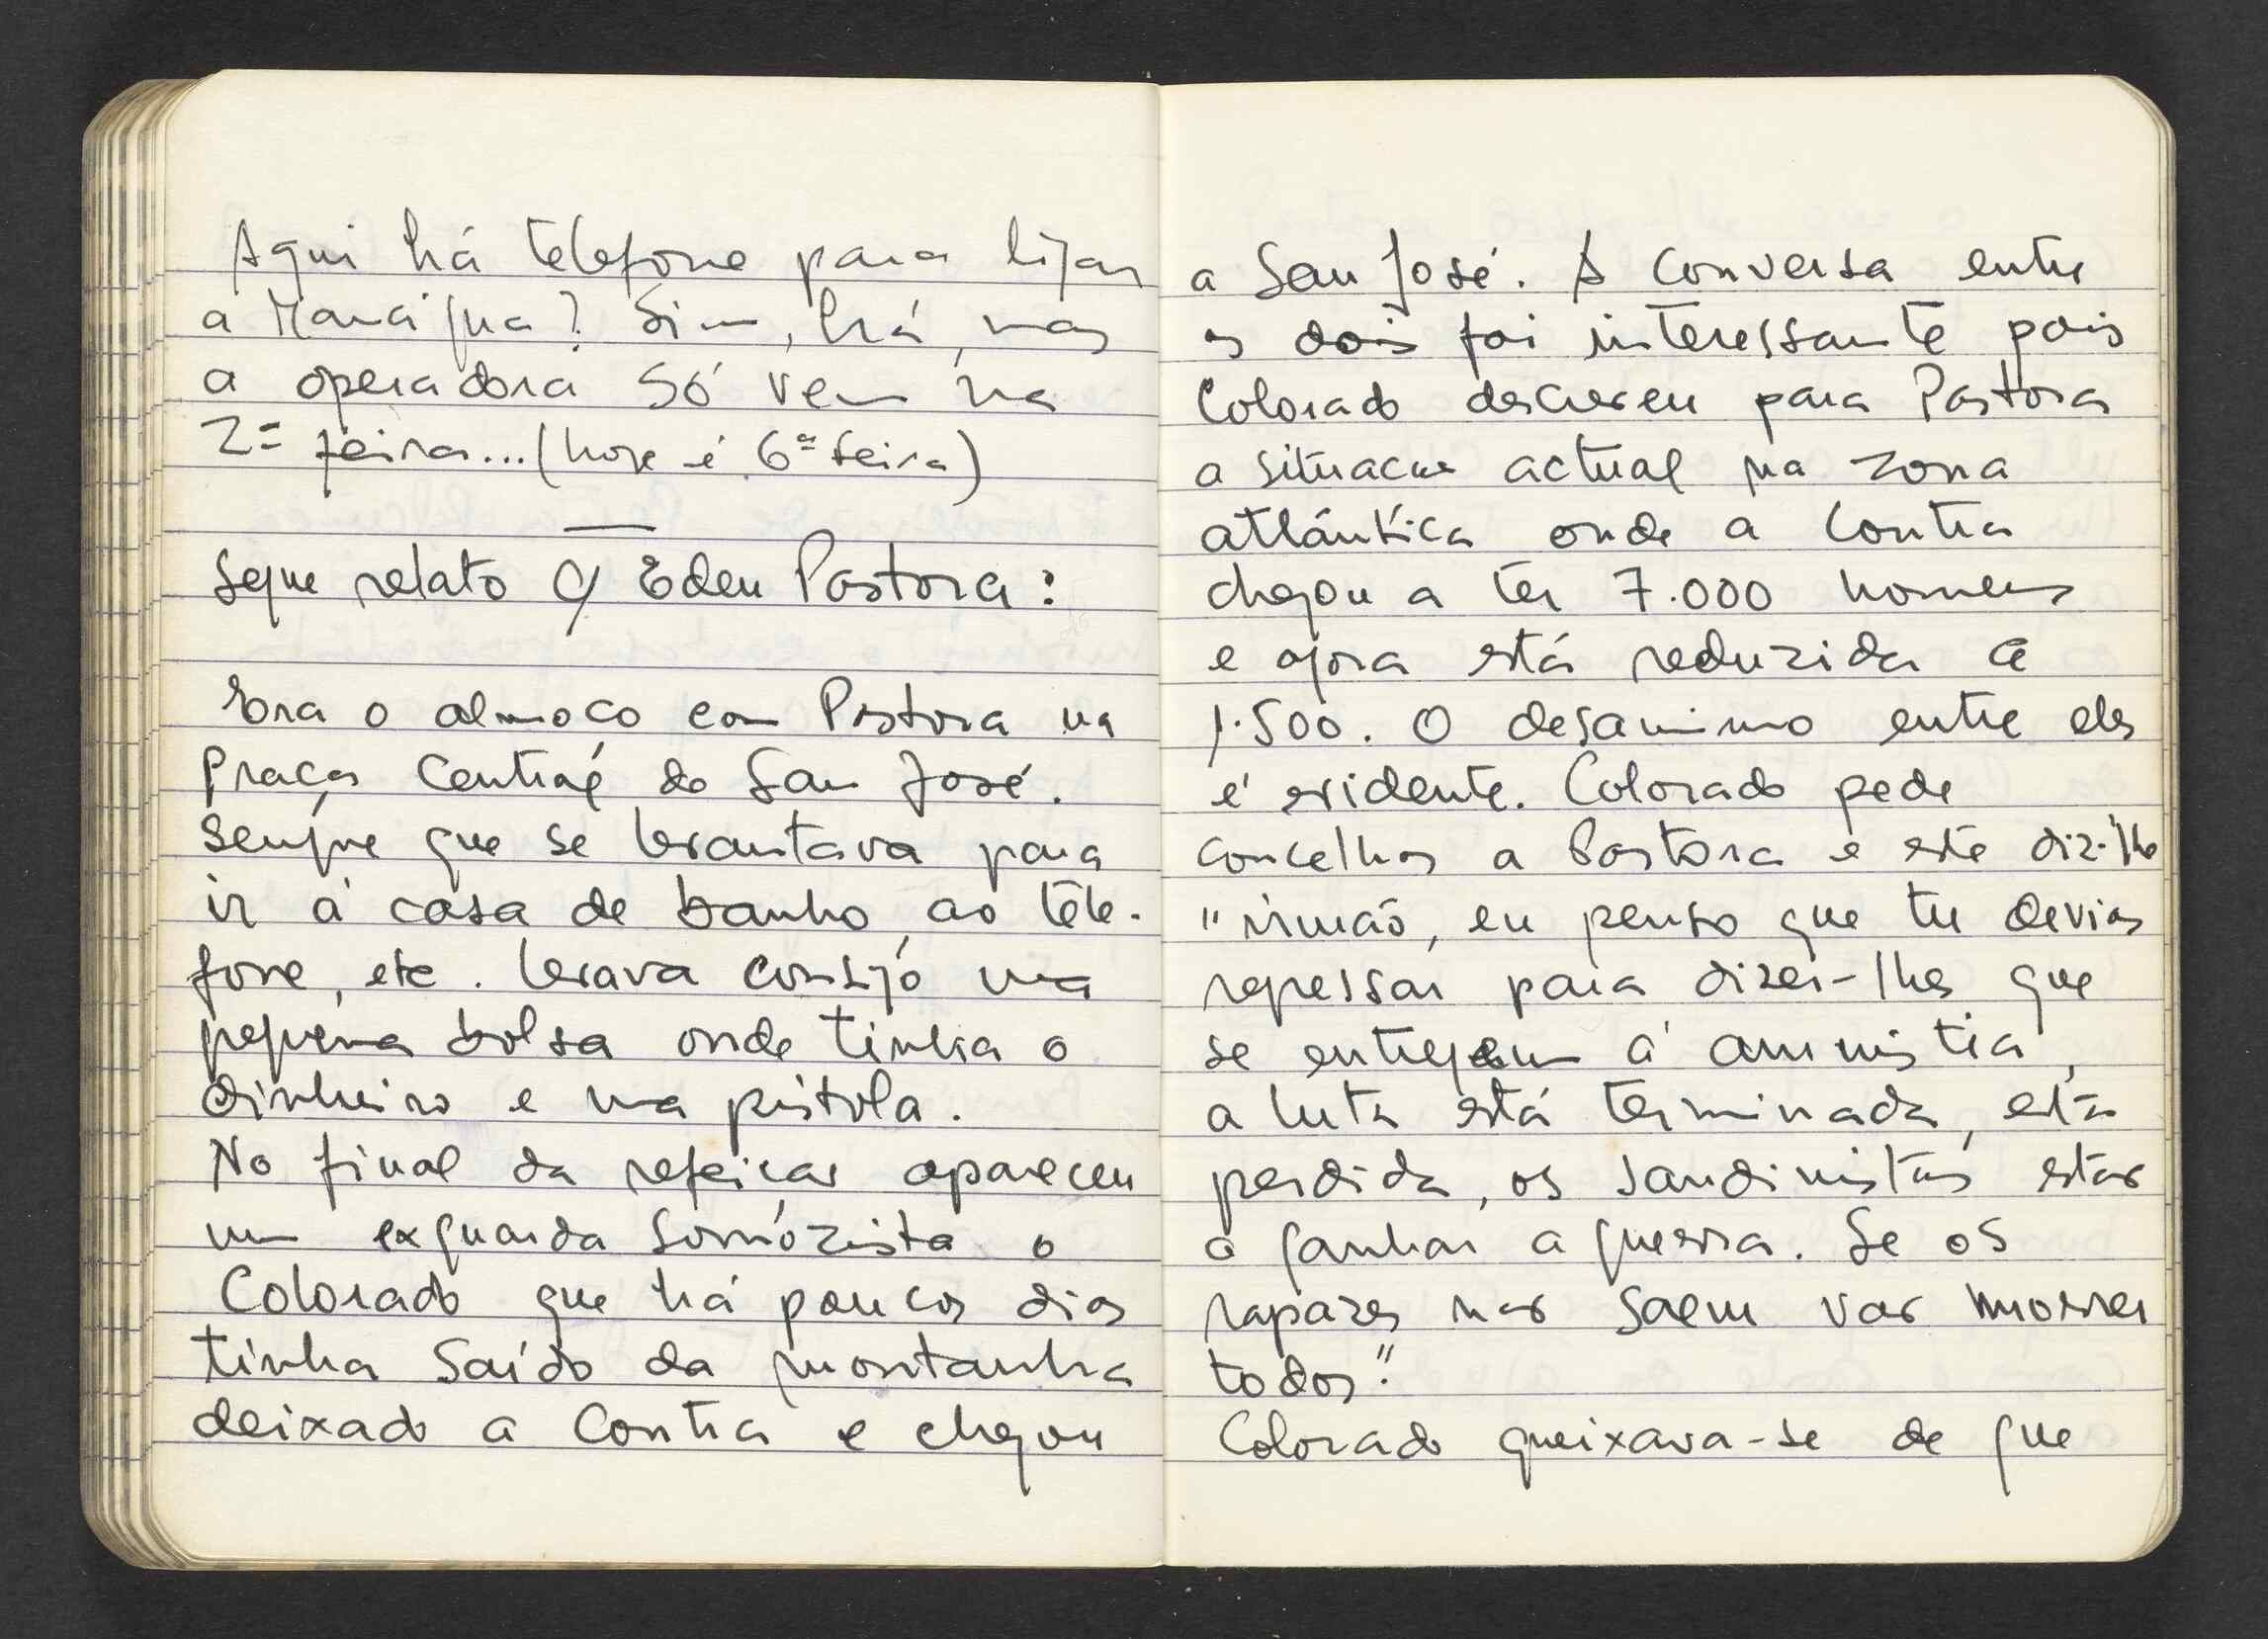 Aqui há telefone para ligar
a Manágua? Sim, há, mas
a operadora só vem na
2ª feira... (hoje é 6ª feira)
Segue relato c/ Eden Pastora:
Era o almoço com Pastora na
Praça Central de San José.
Sempre que se levantava para
ir á casa de banho, ao tele-
fone, etc. levava consigo uma
pequena bolsa onde tinha o
dinheiro e uma pistola.
No final da refeição apareceu
um ex guarda somózista o
Colorado que há poucos dias
tinha saído da montanha
deixado a Contra e chegou
a San José. A conversa entre
os dois foi interessante pois
Colorado descreveu para Pastora
a situação actual na zona
atlántica onde a Contra
chegou a ter 7.000 homens
e agora está reduzida a
1.500. O desanimo entre eles
é evidente. Colorado pede
concelhos a Pastora e este diz-lhe
"irmão, eu penso que tu devias
regressar para dizer-lhes que
se entreguem á amnistia,
a luta está terminada, está
perdida, os sandinistas estão
a ganhar a guerra. Se os
rapazes não saem vão morrer
todos."
Colorado queixava-se de que